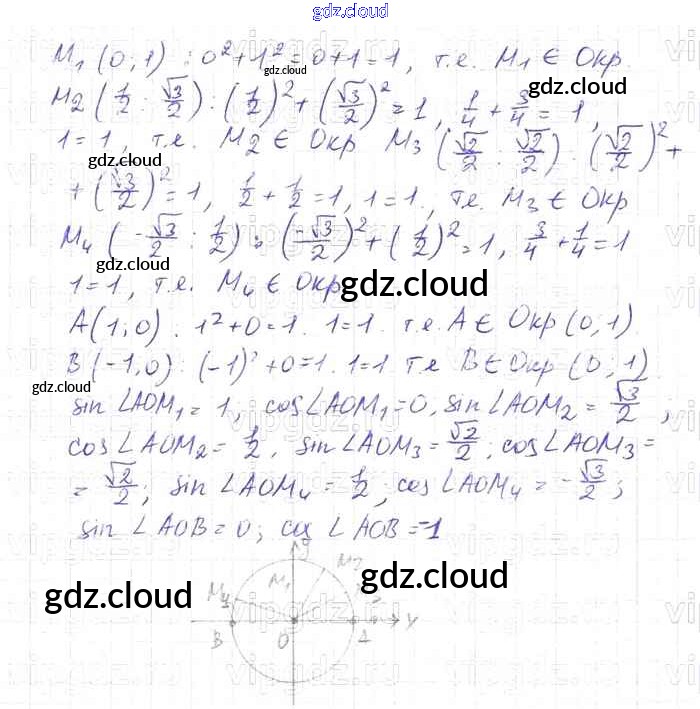 gdz.cloud
M₁ (0;1) : 0² + 1² = 0+1 = 1, т.е. M₁ ∈ Окр.
gdz.cloud
gdz.cloud
M₂ (1/2 ; √3/2) : (1/2)² + (√3/2)² = 1, 1/4 + 3/4 = 1,
1 = 1, т.е. M2 ∈ Окр M₃ (√2/2 ; √2/2) : (√2/2)² +
gdz.cloud
+ (√3/2)² = 1, 1/2 + 1/2 = 1, 1 = 1, т.е. M₃ ∈ Окр
M₄ (-√3/2 ; 1/2) : (-√3/2)² + (1/2)² = 1, 3/4 + 1/4 = 1
gdz.cloud
1 = 1, т.е. M₄ ∈ Окр
gdz.cloud
A(1;0) : 1² + 0 = 1. 1 = 1. т.е. A ∈ Окр (0;1).
B (-1;0) : (-1)² + 0 = 1. 1 = 1 т.е B ∈ Окр (0;1)
gdz.cloud
sin ∠AOM₁ = 1; cos ∠AOM₁ = 0, sin ∠AOM₂ = √3/2;
cos ∠AOM₂ = 1/2, sin ∠AOM₃ = √2/2; cos ∠AOM₃ =
= √2/2; sin ∠AOM₄ = 1/2; cos ∠AOM₄ = -√3/2;
sin ∠AOB = 0; cos ∠AOB = -1
y
M₂
M₁
M₄
gdz.cloud
gdz.cloud
B O A
vipgdz.ru